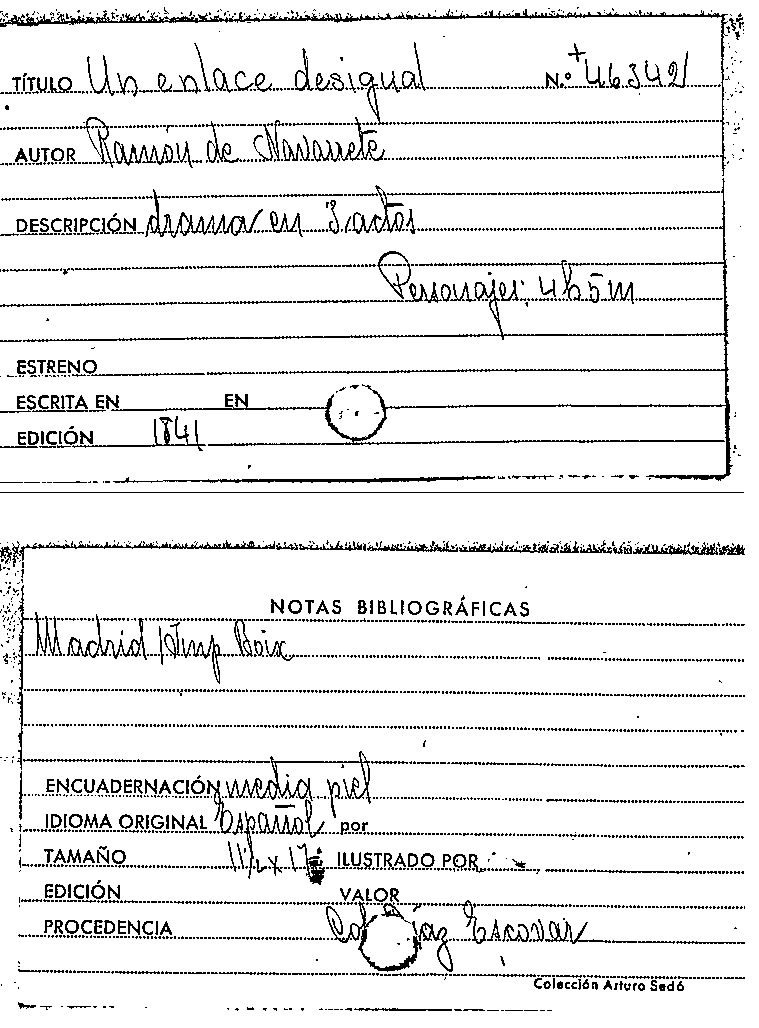 TÍTULO Un enlace desigual N.º +46342
AUTOR Ramón de Navarrete
DESCRIPCIÓN drama en 3 actos
Personajes: 4h 5m
ESTRENO
ESCRITA EN EN
EDICIÓN 1841
NOTAS BIBLIOGRÁFICAS
Madrid Imp Boix
ENCUADERNACIÓN media piel
IDIOMA ORIGINAL Español por
TAMAÑO 11½ x 17 ILUSTRADO POR
EDICIÓN VALOR
PROCEDENCIA Escovar
Colección Arturo Sedó